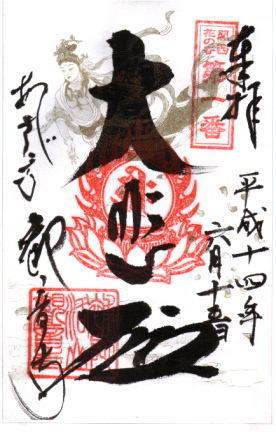 奉拝
関西
花の寺
第一番
平成十四年
六月十五日
大悲殿
観音寺